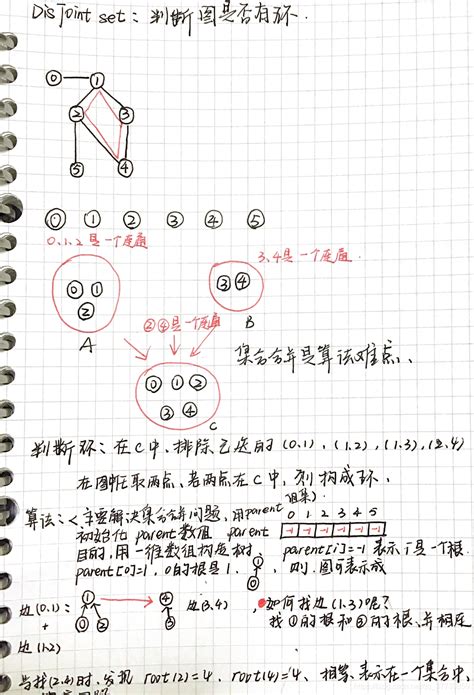 Disjoint set: 判断图是否有环.
0 1
2 3
5 4
0 1 2 3 4 5
0,1,2是一个连通
3,4是一个连通
0 1
2
3 4
②④是一个连通
A
B
集合合并是算法难点、
0 1 2
3 4
C
判断环: 在C中、排除已选的(0,1), (1,2), (1,3), (2,4)
在图中任取两点、若两点在C中, 则构成环.
算法: <主要解决集合合并问题, 用parent 0 1 2 3 4 5
初始化 parent数组 parent -1 -1 -1 -1 -1 -1
目的, 用一维数组构造树、 parent[i]=-1 表示 i 是一个根.
parent[0]=1, 0的根是1、 1 0 则. 图可表示成
边(0,1): 1 4 边(3,4), 如何找边(1,3)呢?
+ 0 2 3 找①的根和③的根、并相连
边(1,2)
当找(2,4)时、发现 root(2)=4, root(4)=4、相等、表示在一个集合中